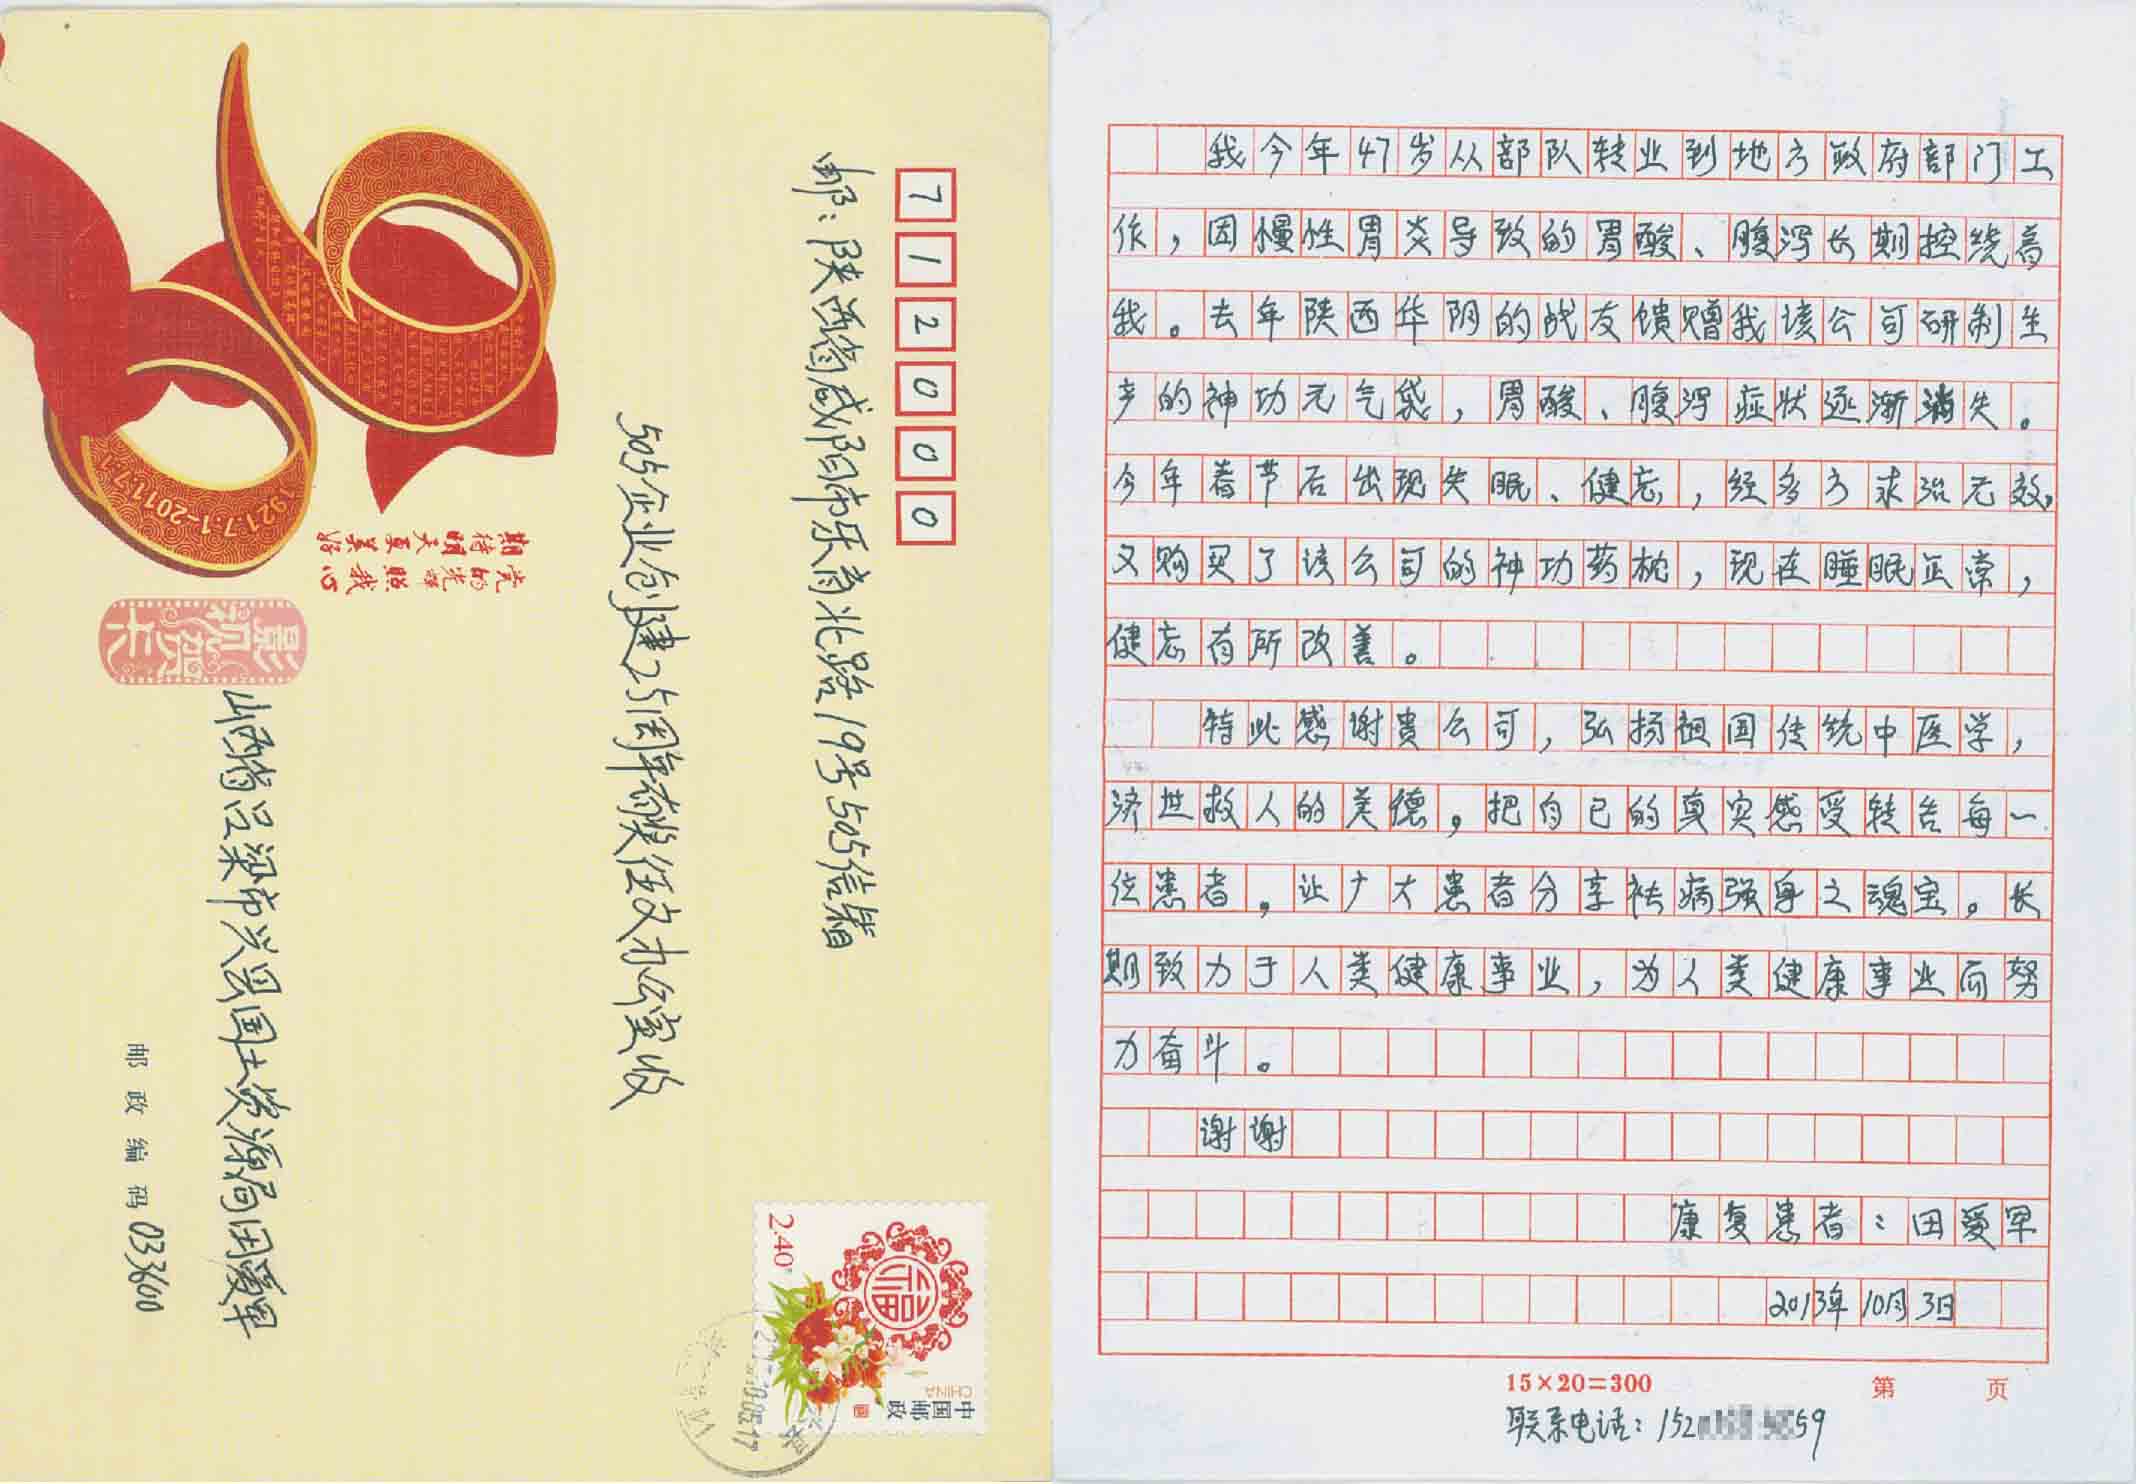 712000
邮：陕西省咸阳市乐育北路19号505信箱
505企业创建25周年有奖征文办公室收
山西省吕梁市兴县国土资源局田爱军
邮政编码033600
1921.7.1-2011.7.1
党的光辉照我心
期待明天更美好
影视贺卡
2.40元
中国邮政
CHINA
福
我今年47岁从部队转业到地方政府部门工
作，因慢性胃炎导致的胃酸、腹泻长期控绕着
我。去年陕西华阴的战友馈赠我该公司研制生
产的神功元气袋，胃酸、腹泻症状逐渐消失。
今年春节后出现失眠、健忘，经多方求治无效，
又购买了该公司的神功药枕，现在睡眠正常，
健忘有所改善。
特此感谢贵公司，弘扬祖国传统中医学，
济世救人的美德，把自己的真实感受转告每一
位患者，让广大患者分享祛病强身之瑰宝。长
期致力于人类健康事业，为人类健康事业而努
力奋斗。
谢谢
康复患者：田爱军
2013年10月3日
15×20=300
第 页
联系电话：152 59